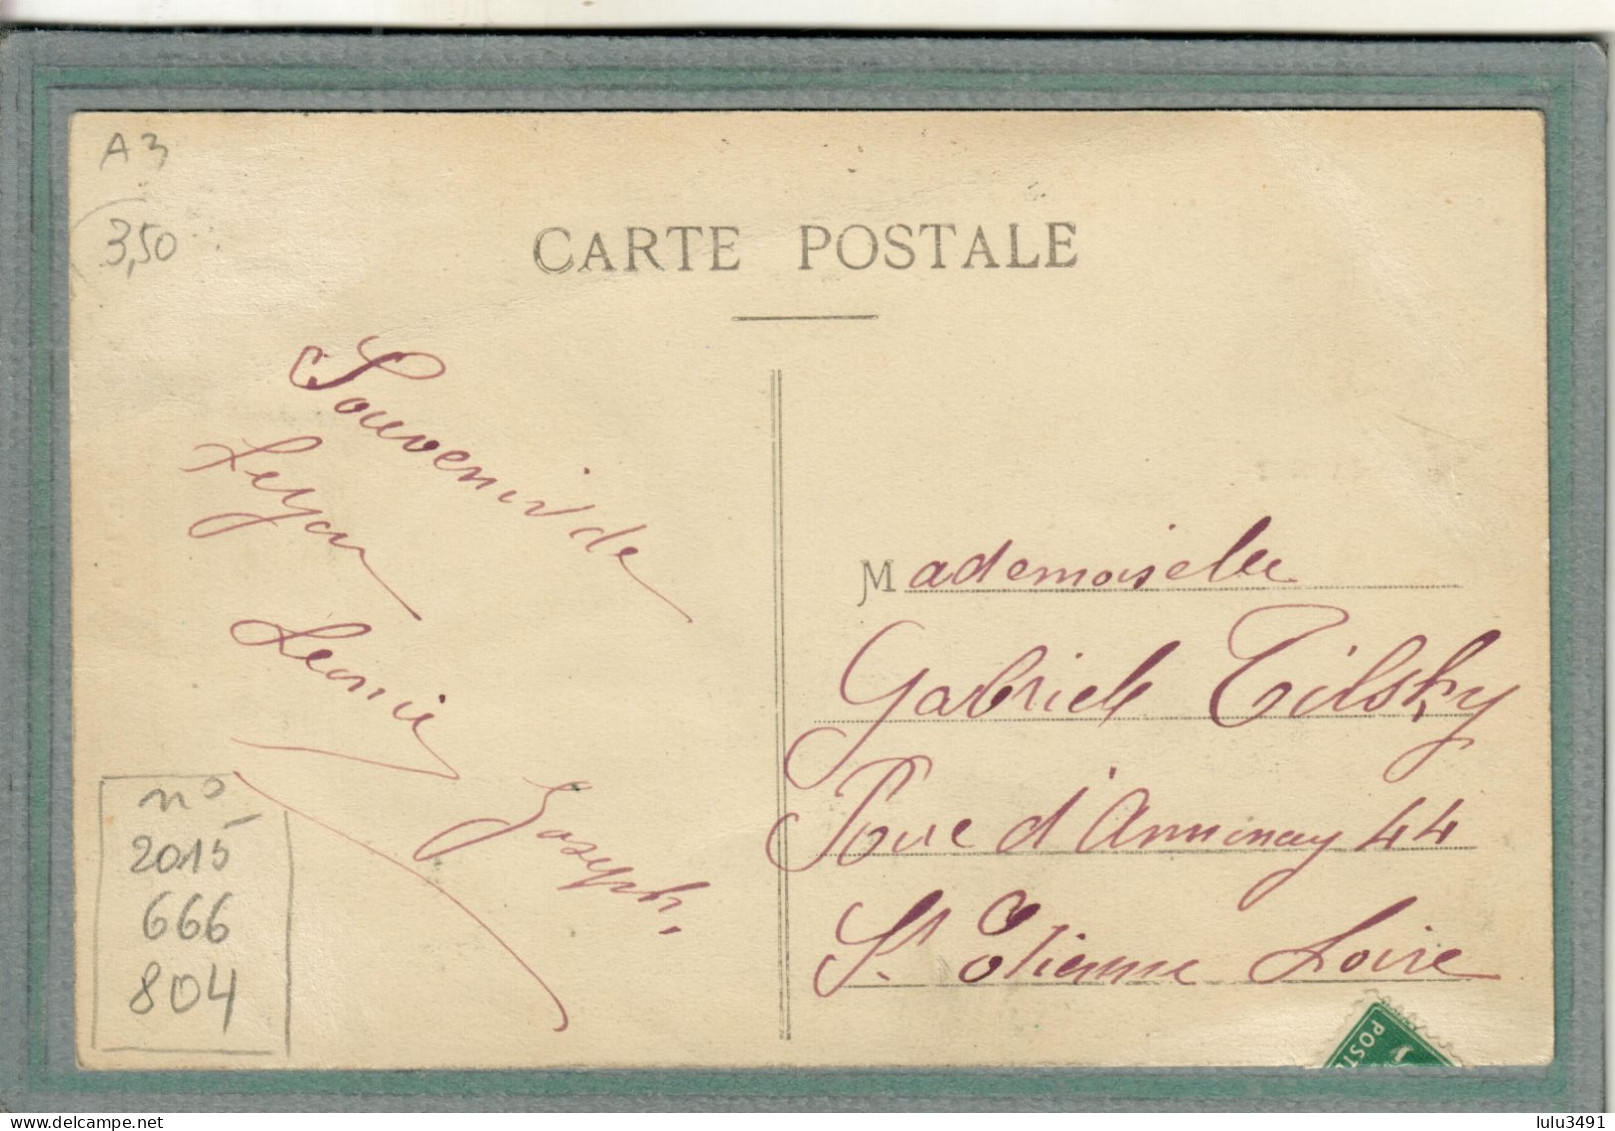 A3
3,50
CARTE POSTALE
Souvenir de
Leyon
Leonie
Joseph.
n°
2015
666
804
Mademoiselle
Gabriele Tilsky
Rue d'Annonay 44
St Etienne Loire
POSTE
delcampe.net
lulu3491